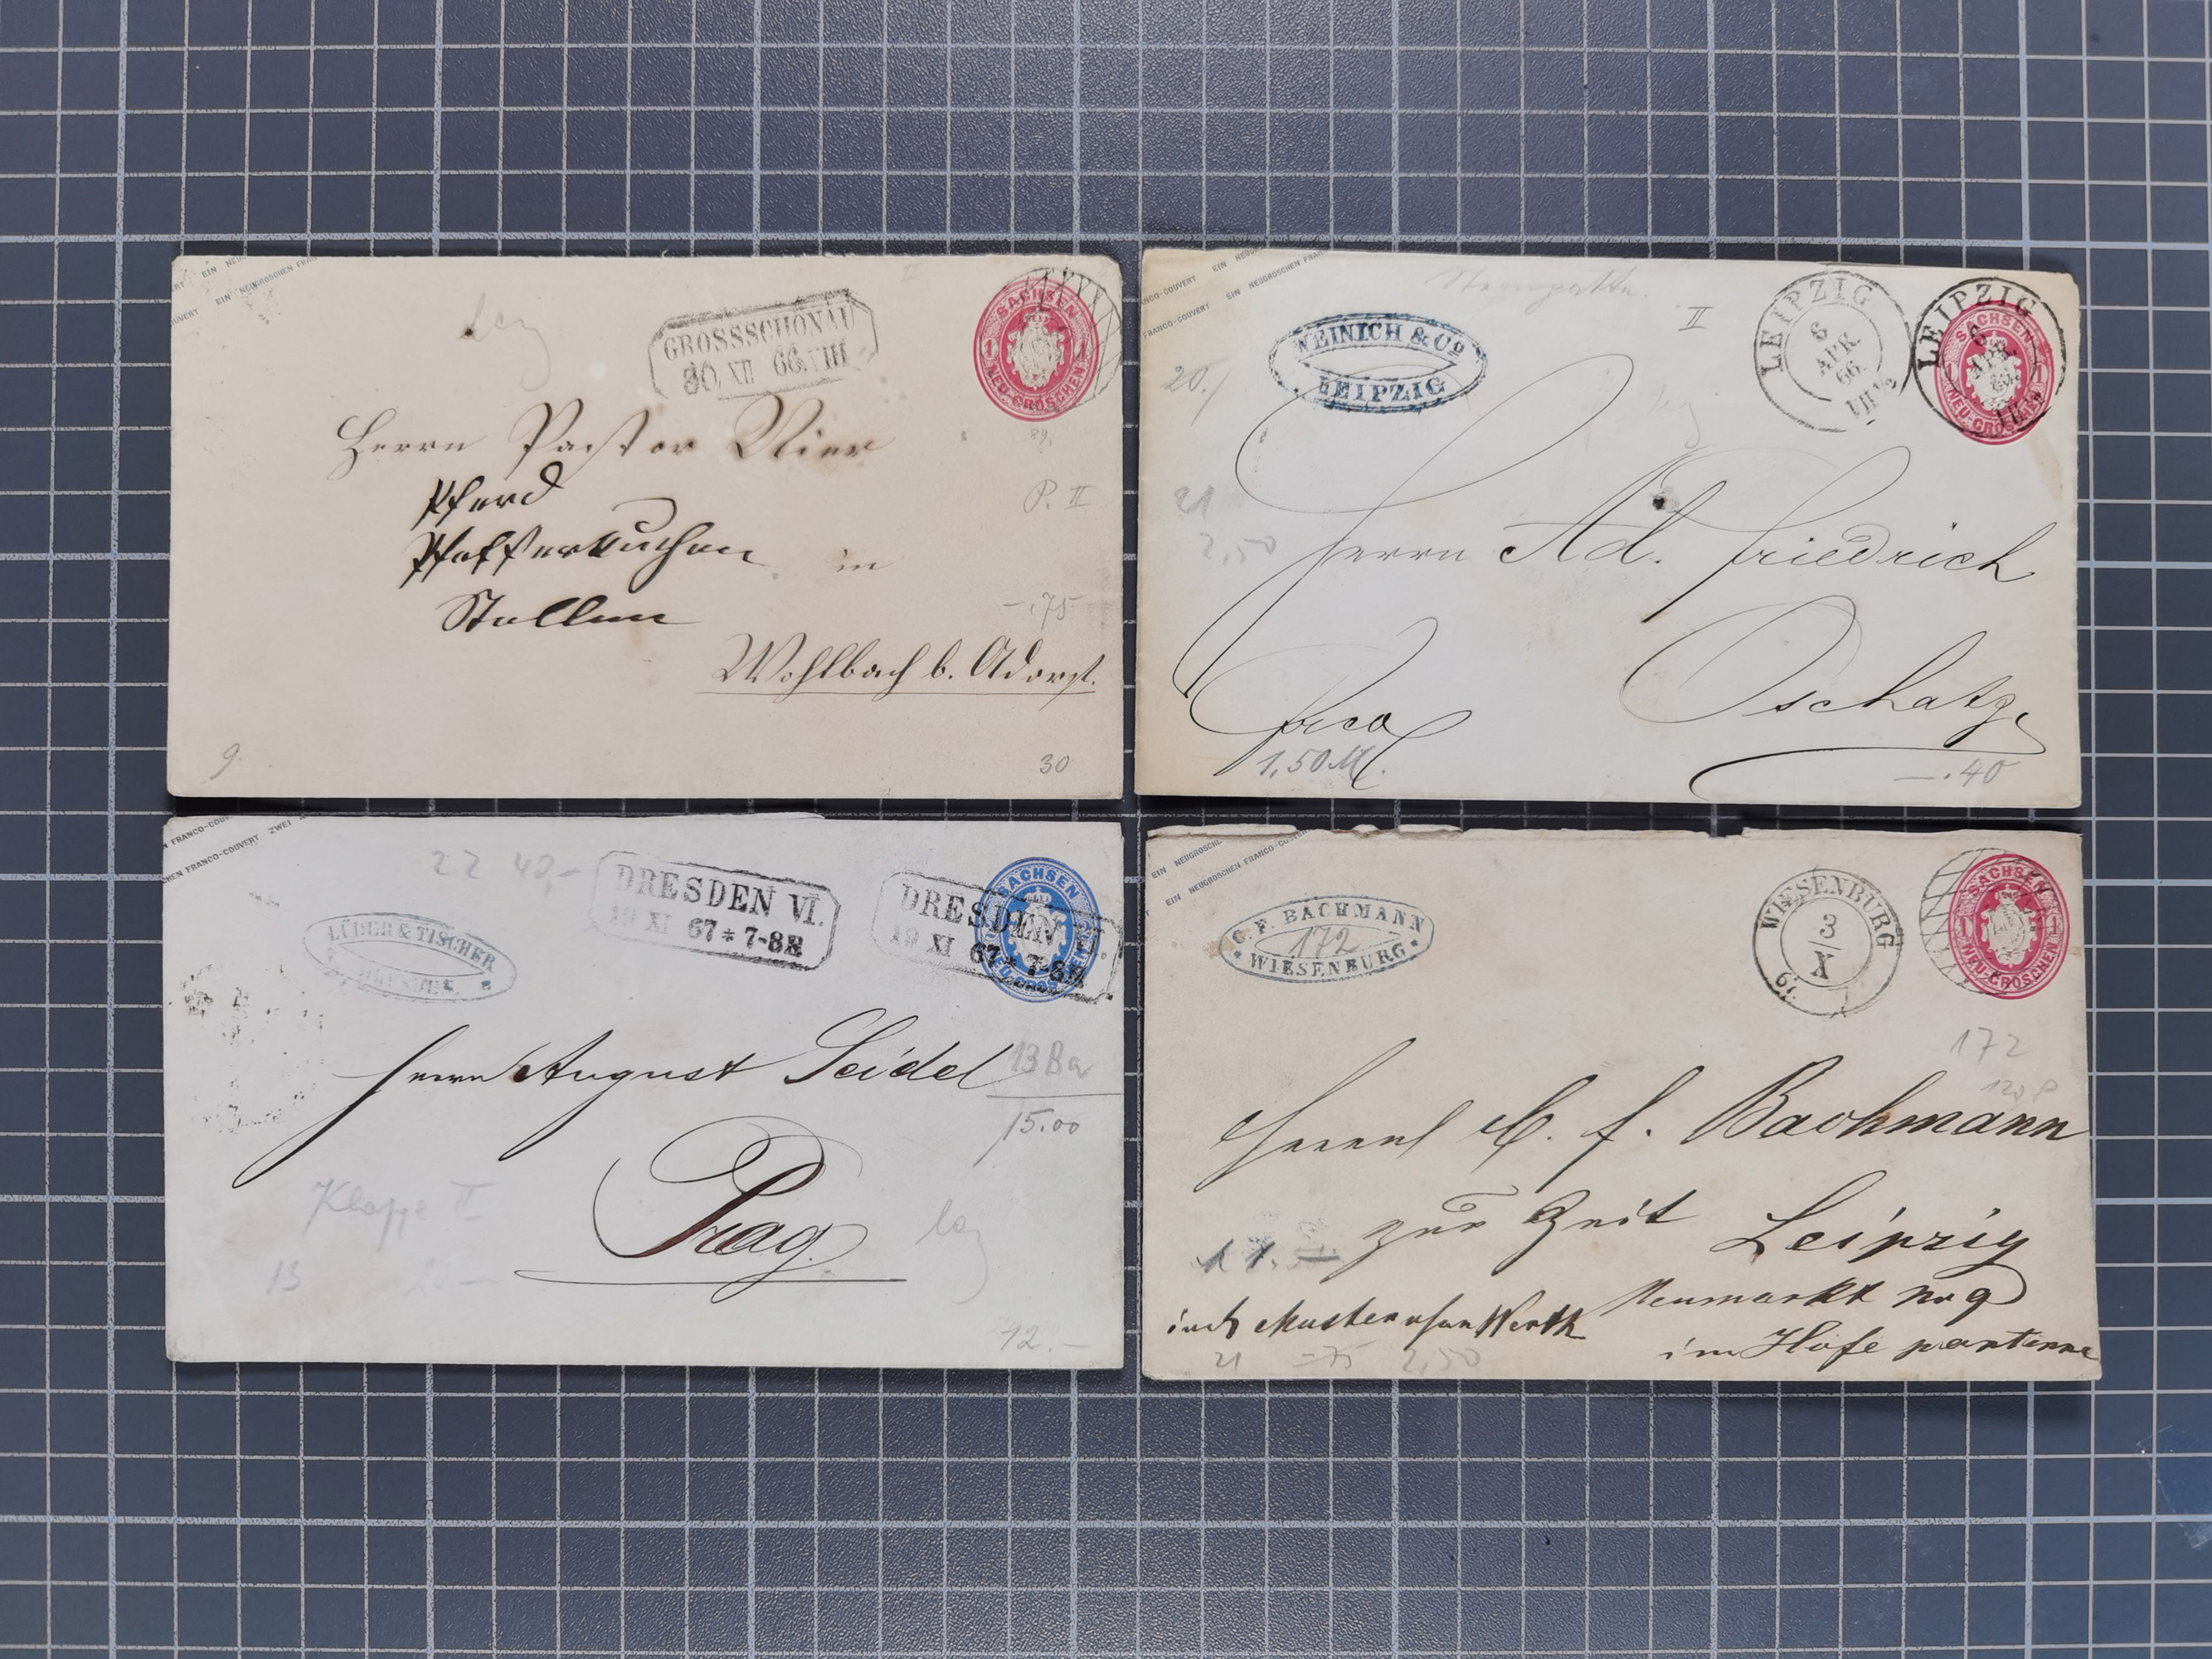 EIN NEU
EIN NEUGROSCHEN FRA
COUVERT
GROSSSCHÖNAU
30 XII 66 VIII
SACHSEN
1 1
NEU-GROSCHEN
Herrn Pastor
Pferd
Pfefferkuchen in
Stollen
P. II
-.75
Wohlbach b. Adorf.
9.
30
NCO-COUVERT EIN NEUG
FRANCO-COUVERT EIN NEUGROSCHEN FRAN
WEINICH & Co
LEIPZIG
II
LEIPZIG
6
APR.
66
VII½
LEIPZIG
6
APR.
SACHSEN
1 1
NEU-GROSCHEN
20.
21
2,50
Herrn Ad. Friedrich
Oschatz
frco
1,50 M.
-.40
FRANCO-COUV
CHEN FRANCO-COUVERT ZWEI
22 40,-
LÜDER & TISCHER
DRESDEN
DRESDEN VI.
19 XI 67 * 7-8
DRESDEN
19 XI 67 * 7-8
SACHSEN
Herrn August Seidel
13 Ba
15.00
Prag.
Klappe II
13 20-
12.-
EIN NEUGROSCHE
EIN NEUGROSCHEN FRANCO-CO
C. F. BACHMANN
172
WIESENBURG
WIESENBURG
3
X
67
SACHSEN
1 1
NEU-GROSCHEN
172
Herrn C. F. Bachmann
zur Zeit Leipzig
Neumarkt No 9
incl. Muster ohne Werth
im Hofe parterre
21 -75 2,50